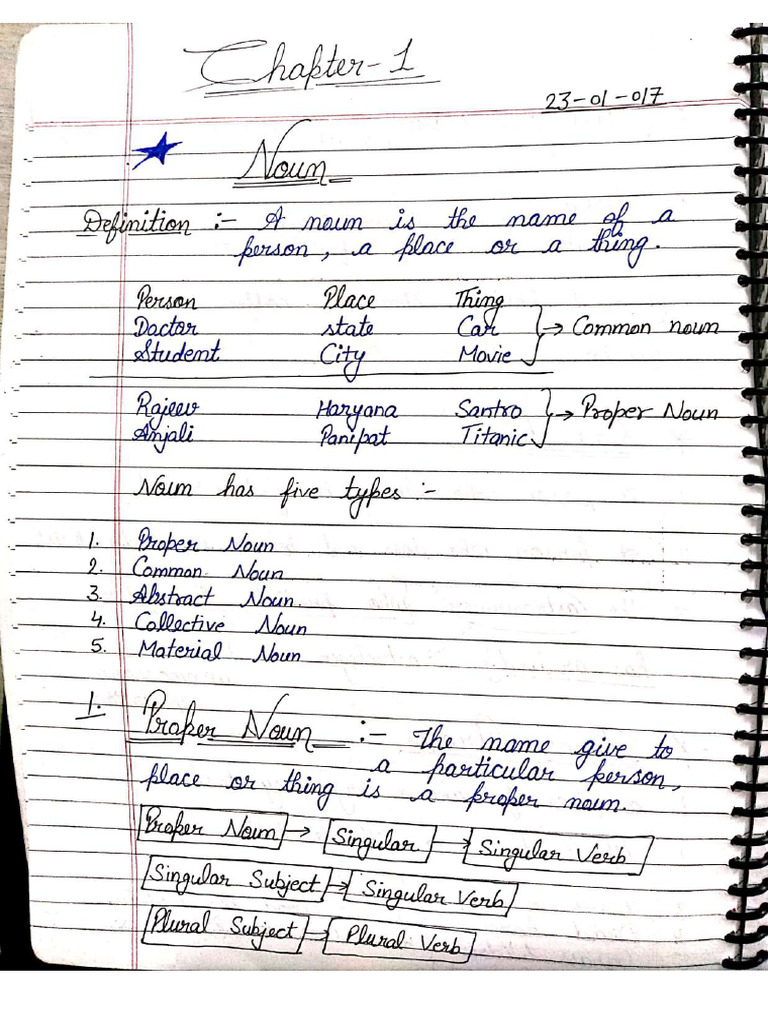 Chapter-1
23-01-017
Noun
Definition :- A noun is the name of a
person, a place or a thing.
Person Place Thing
Doctor state Car → Common noun
Student City Movie
Rajeev Haryana Santro → Proper Noun
Anjali Panipat Titanic
Noun has five types :-
1. Proper Noun
2. Common Noun
3. Abstract Noun.
4. Collective Noun
5. Material Noun
1. Proper Noun :- The name give to
a particular person,
place or thing is a proper noun.
Proper Noun → Singular → Singular Verb
Singular Subject → Singular Verb
Plural Subject → Plural Verb